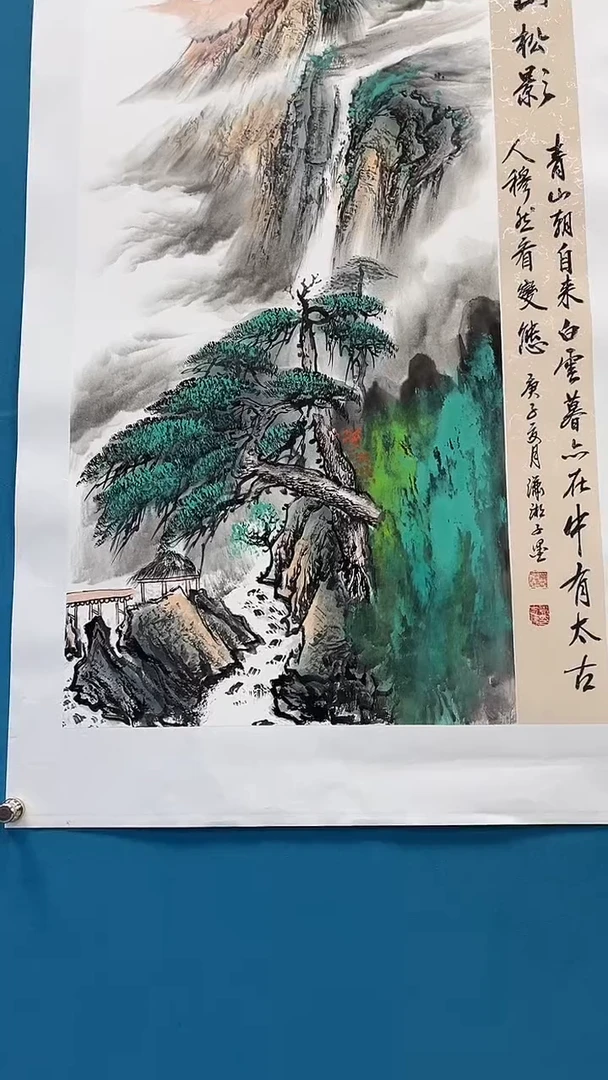 山松影
青山朝自来白雲暮亦在中有太古
人穆然看變態
庚子夏月瀟湘子墨